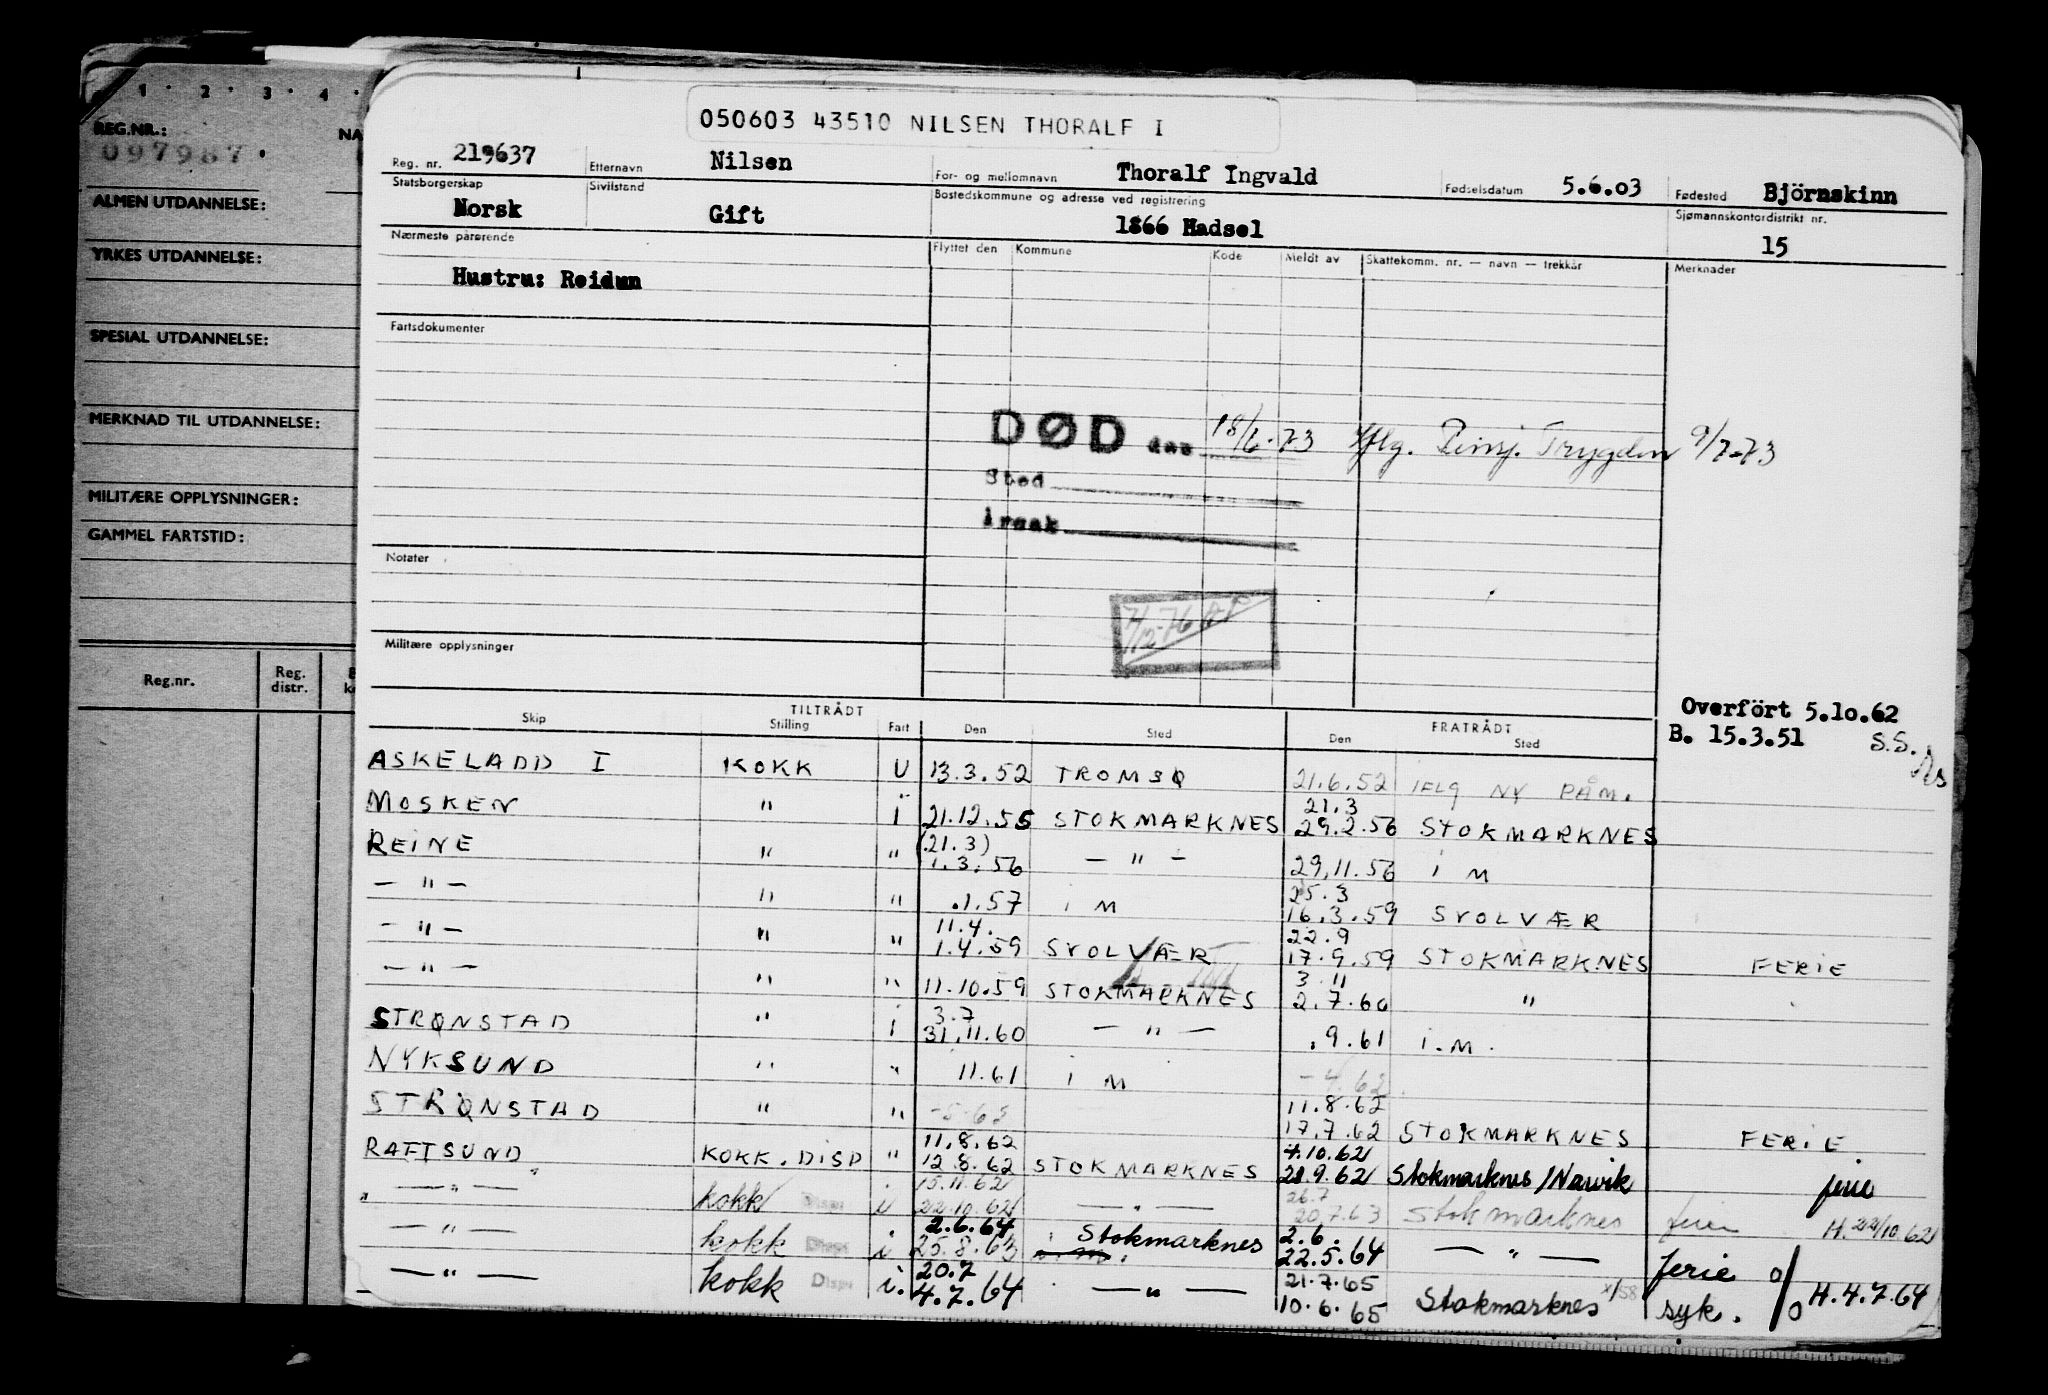 1 · 2 · 3 · 4 ·
REG.NR.: NA
097987.
ALMEN UTDANNELSE:
YRKES UTDANNELSE:
SPESIAL UTDANNELSE:
MERKNAD TIL UTDANNELSE:
MILITÆRE OPPLYSNINGER:
GAMMEL FARTSTID:
Reg.nr. Reg. distr.
050603 43510 NILSEN THORALF I
Reg. nr. 219637 Etternavn Nilsen For- og mellomnavn Thoralf Ingvald Fødselsdatum 5.6.03 Fødested Björnskinn
Statsborgerskap Norsk Sivilstand Gift Bostedskommune og adresse ved registrering 1866 Hadsel Sjømannskontordistrikt nr. 15
Nærmeste pårørende Flyttet den Kommune Kode Meldt av Skattekomm. nr. — navn — trekkår Merknader
Hustru: Reidun
Fartsdokumenter
DØD den 18/6-73 Iflg. Pensj. Trygden 9/7-73
Sted
Årsak
Notater
7/12-76
Militære opplysninger
Overfört 5.10.62
B. 15.3.51 S.S.
TILTRÅDT FRATRÅDT
Skip Stilling Fart Den Sted Den Sted
ASKELADD I KOKK U 13.3.52 TROMSØ 21.6.52 IFLG NY PÅM.
MOSKEN " i 21.12.55 STOKMARKNES 21.3 29.2.56 STOKMARKNES
REINE " " (21.3) 1.3.56 — " — 29.11.56 i M
— " — " " .1.57 i M 25.3 16.3.59 SVOLVÆR
— " — " " 11.4. 1.4.59 SVOLVÆR 22.9 17.9.59 STOKMARKNES FERIE
— " — " " 11.10.59 STOKMARKNES 3.11 2.7.60 "
STRØNSTAD " i 3.7 31.11.60 — " — .9.61 i.M.
NYKSUND " " 11.61 i M - 4.62
STRØNSTAD " " 11.8.62 17.7.62 STOKMARKNES FERIE
RAFTSUND KOKK.DISP " 11.8.62 12.8.62 STOKMARKNES 4.10.62 28.9.62 Stokmarknes/Narvik ferie
— " — kokk Disp i 15.11.62 22.10.62 — " — 26.7 20.7.63 Stokmarknes ferie H. 22/10.62
— " — kokk i 2.6.64 25.8.63 Stokmarknes 2.6. 22.5.64 — " — ferie
— " — kokk Disp i. 20.7 4.7.64 — " — 21.7.65 10.6.65 Stokmarknes syk. H.4.7.64